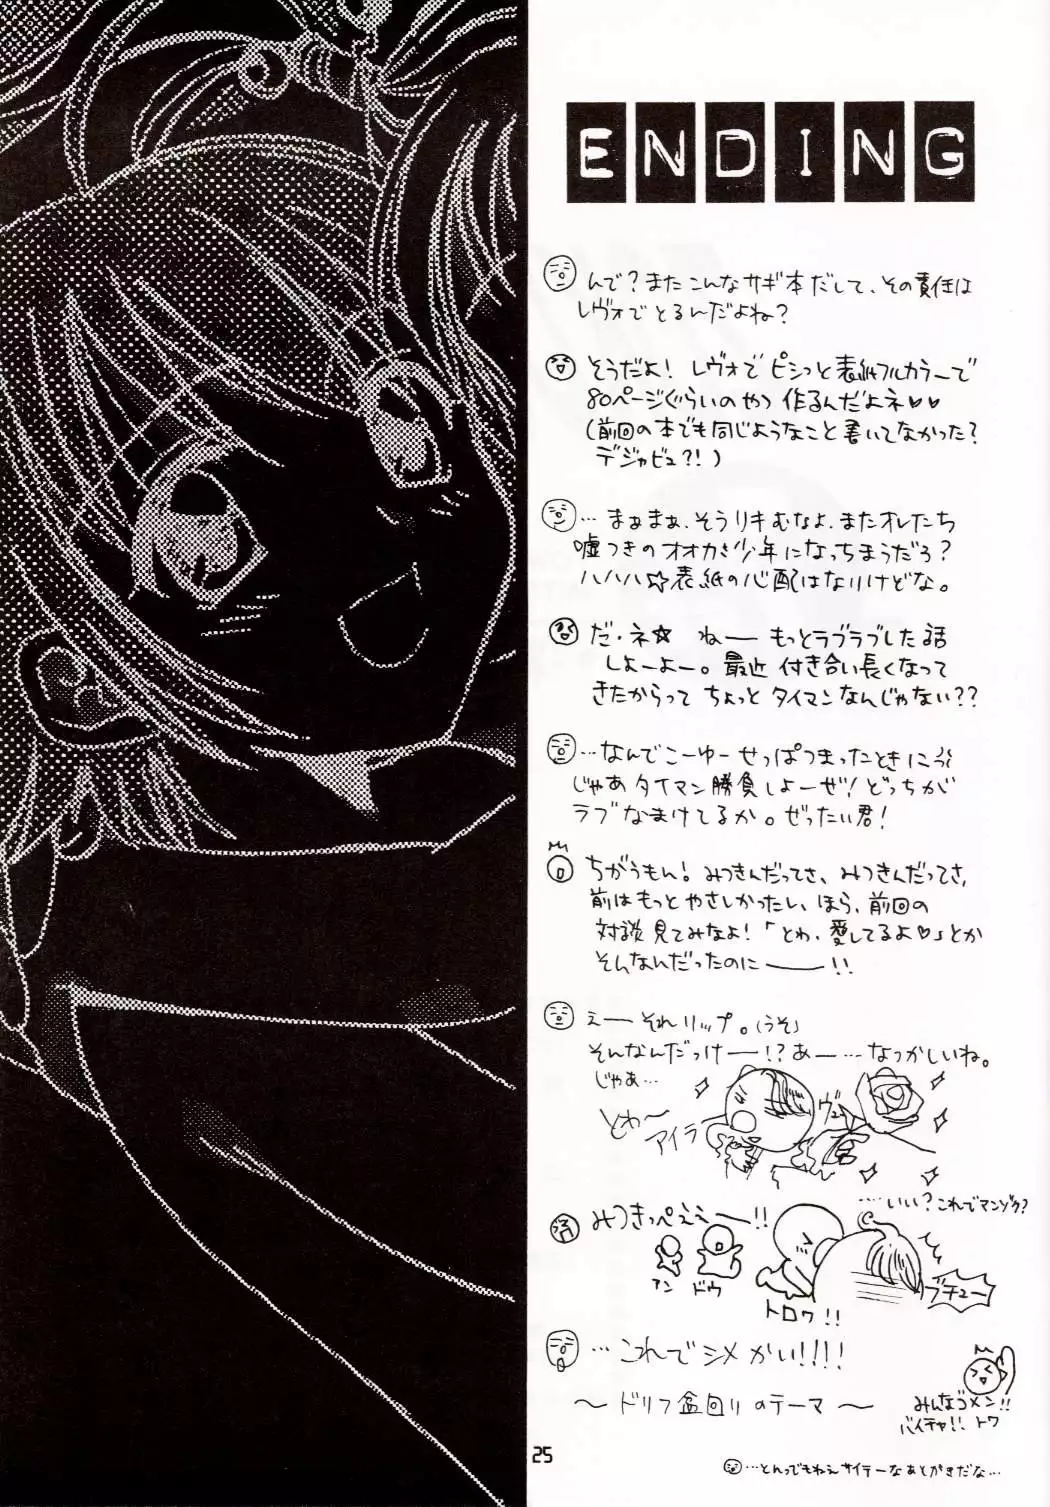 ENDING
んで?またこんなサギ本だして、その責任は
レヴォでとるんだよね?
そうだよ! レヴォでピシっと表紙フルカラーで
80ページくらいのやつ作るんだよネ♥♥
(前回の本でも同じようなこと書いてなかった?
デジャビュ?!)
…まぁまぁ、そうリキむなよ、またオレたち
嘘つきのオオカミ少年になっちまうだろ?
ハハハ☆表紙の心配はなりけどな。
だ・ネ☆ ねー もっとラブラブした話
しよーよー。最近付き合い長くなって
きたからって ちょっとタイマンなんじゃない??
…なんでこーゆーせっぱつまったときに
じゃあタイマン勝負しよーぜ!どっちが
ラブなまけてるか。ぜったい君!
ちがうもん!みつきんだってさ、みつきんだってさ、
前はもっとやさしかったし、ほら、前回の
対談見てみなよ!「とわ、愛してるよ♡」とか
そんなんだったのに――!!
えー それリップ。(うそ)
そんなんだっけー!?あー…なつかしいね。
じゃあ…
とわ〜
アイラ
ヴュ
……いい?これでマンゾク?
みつきっぺぇぇー!!
アン ドウ
トロワ!!
ブチュー
…これでシメかい!!!!
〜ドリフ盆回りのテーマ〜
みんなゴメン!!
バイチャ!! トワ
25
…とんでもねぇサイテーなあとがきだな…